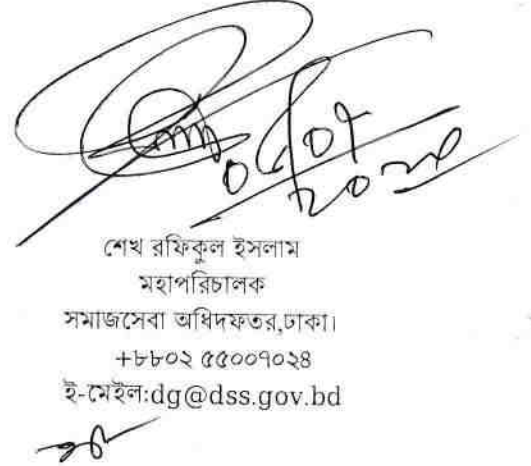 শেখ রফিকুল ইসলাম
মহাপরিচালক
সমাজসেবা অধিদফতর,ঢাকা।
+৮৮০২ ৫৫০০৭০২৪
ই-মেইল:dg@dss.gov.bd